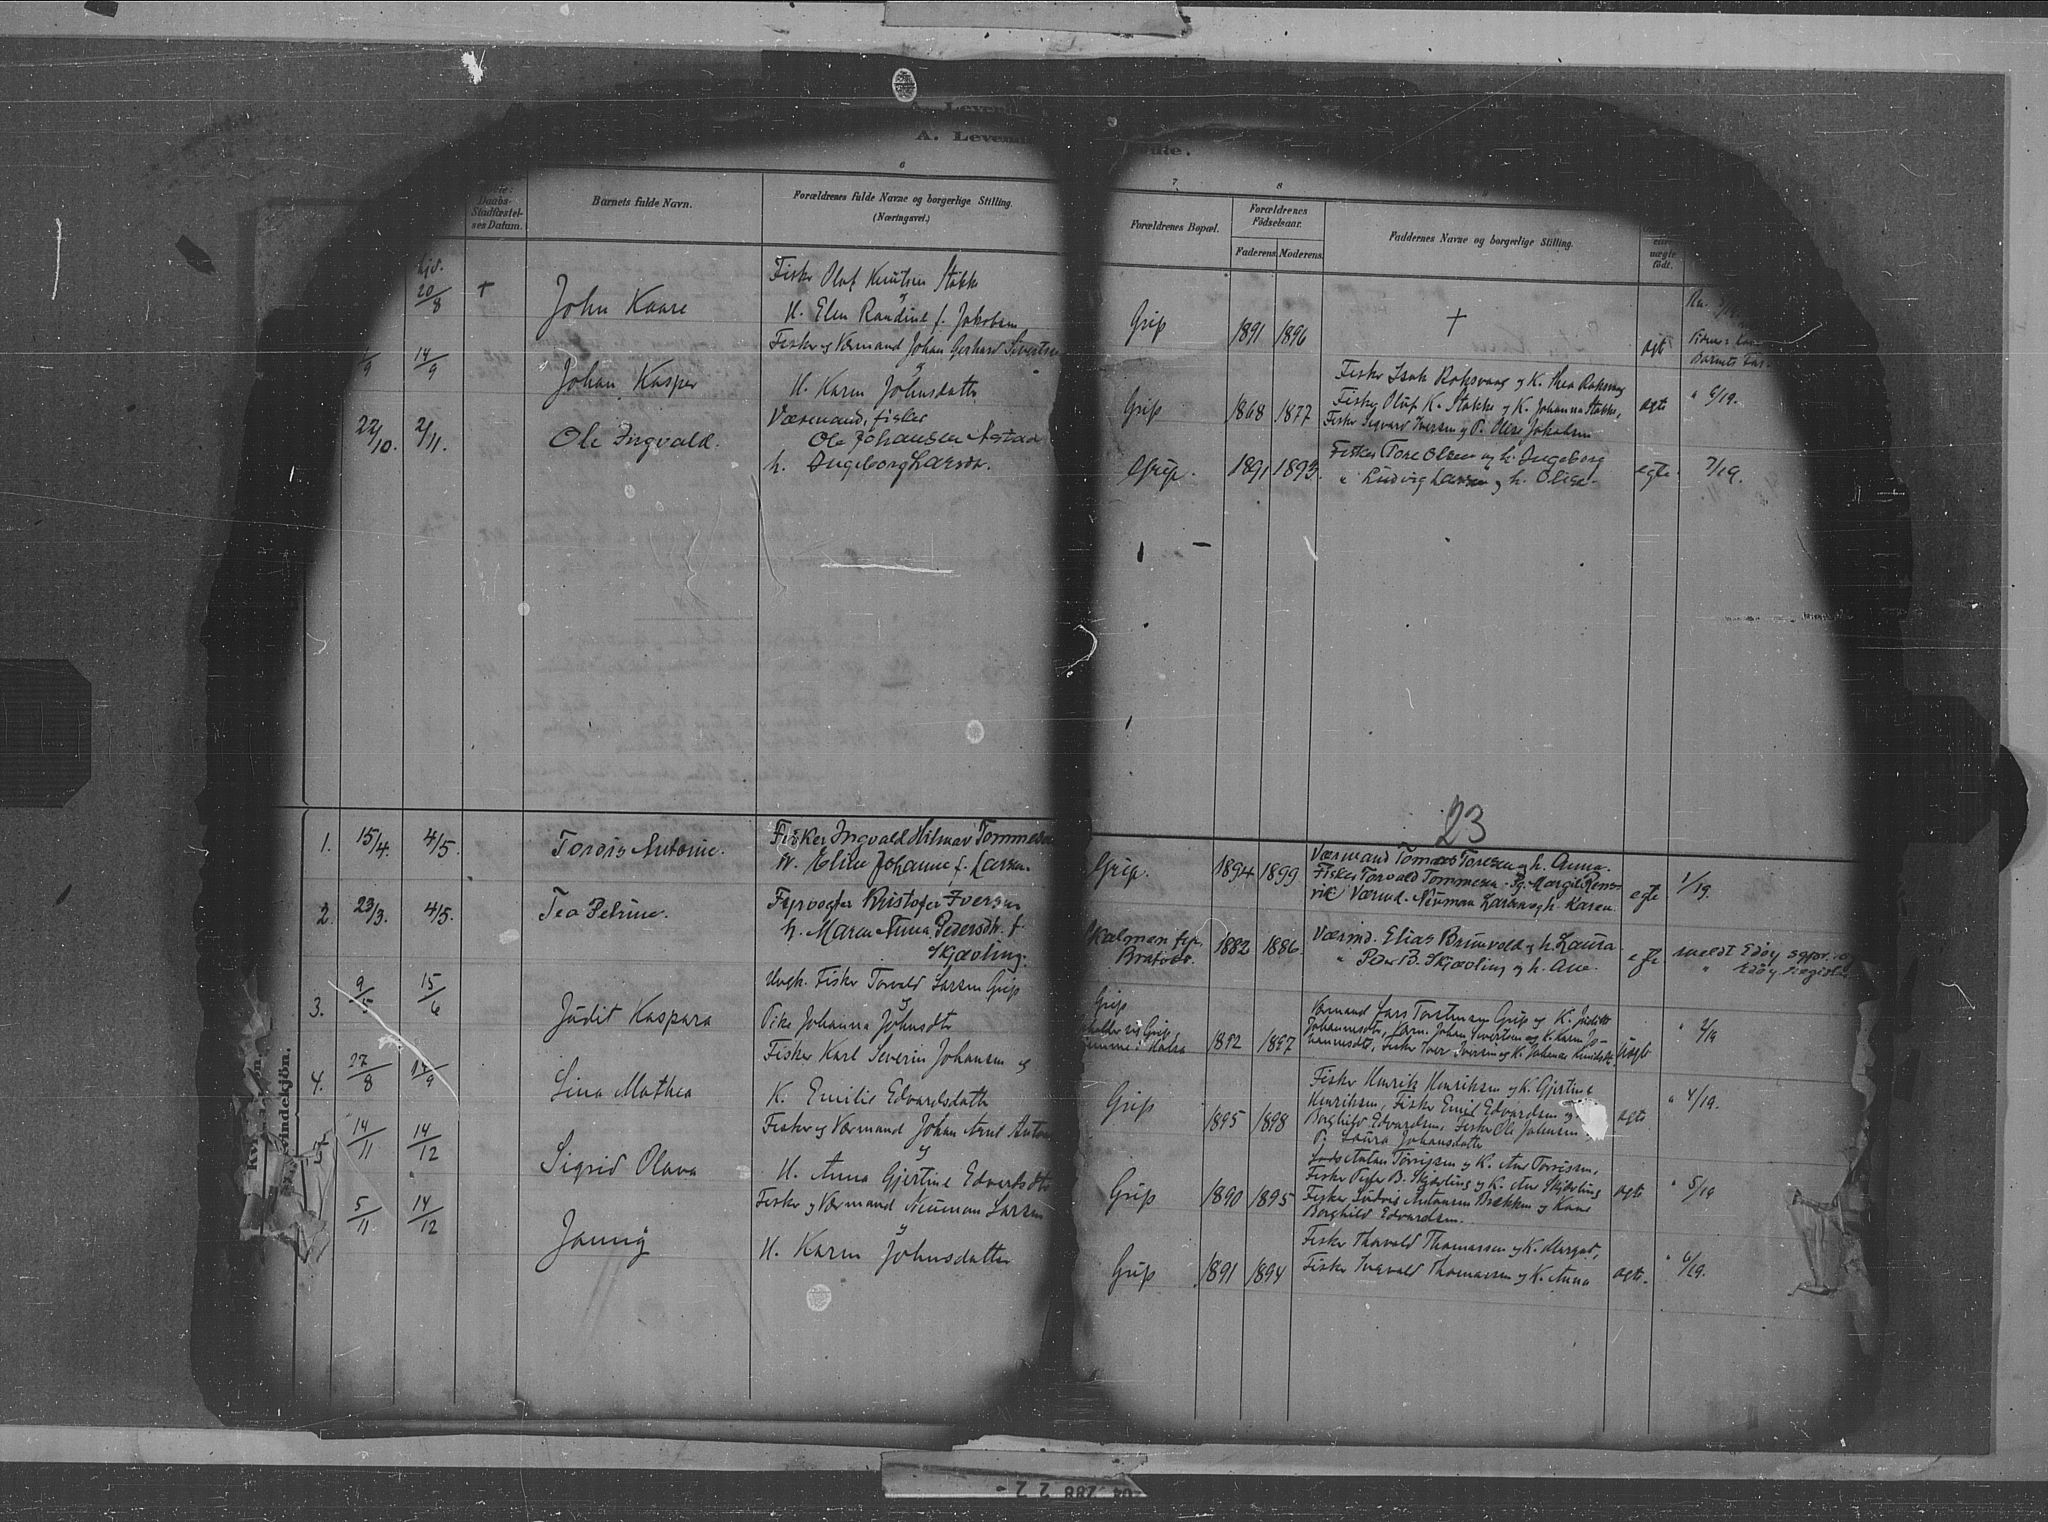 A. Levende
6
Daabs-
Stadfæstel-
ses Datum.
Barnets fulde Navn.
Forældrenes fulde Navne og borgerlige Stilling.
(Næringsvei.)
7
8
Forældrenes Bopæl.
Forældrenes
Födselsaar.
Faderens
Moderens
Faddernes Navne og borgerlige Stilling.
uægte
födt.
hjd.
20/8
+
John Kaare
Fisker Oluf Knutsen Stokke
og
H. Elen Randine f. Jakobsen
Grip
1891
1896
+
ægte
Barnets Far.
/9
14/9
Johan Kasper
Fisker og Værmand Johan Gerhard Sivertsen
og
H. Karen Johnsdatter
Grip
1868
1877
Fisker Isak Roksvaag og K. Thea Roksvaag
Fisker Oluf K. Stokke og K. Johanna Stokke,
Fisker Sigvard Iversen og P. Olise Jakobsen
ægte
" 6/19.
22/10.
2/11.
Ole Ingvald.
Væremand, fisker
Ole Johansen
h. Ingeborg Larsdr.
Grip.
1891
1893.
Fisker Tore Olsen og h. Ingeborg
" Ludvig Larsen og h. Olise.
egte.
7/19.
23
1.
15/4.
4/5
Tordis Antonie.
Fisker Ingvald Hilmar Tommesen
h. Eline Johanne f. Larsen.
Grip.
1894
1899
Værmand Tomas Toresen og h. Anna.
Fisker Torvald Tommesen. Pg. Margit Rens-
vik Værmd. Neuman Larsen og h. Karen.
egte
1/19.
2.
23/3.
4/5.
Tea Petrine.
Fyrvogter Kristofer Iversen
h. Maren Anna Pedersdtr. f.
Skjævling.
Skalmen fyr,
1882
1886.
Værmd. Elias Brunvold og h. Laura
" Peder B. Skjævling og h. Ane.
egte
meldt Edøy
" Edøy
3.
9/5
15/6
Judit Kaspara
Ungk. Fisker Torvald Larsen Grip
og
Pike Johanna Johnsdtr
Grip
1892
1897
Værmand Lars Torstensen Grip og K. Judith
Johannesdtr, Værm. Johan Sivertsen og K. Karen Jo-
hannesdtr, Fisker Iver Iversen og K. Johanna Knudsdtr.
uægte
" 2/19
4.
27/8
14/9
Lina Mathea
Fisker Karl Severin Johansen og
K. Emilie Edvardsdatter
Grip
1895
1898
Fisker Henrik Henriksen og K. Gjertine
Henriksen, Fisker Emil Edvardsen og
Borghild Edvardsen, Fisker Ole Johnsen
P. Laura Johansdatter
ægte
" 4/19.
5
14/11
14/12
Sigrid Olava
Fisker og Værmand Johan Arnt Anton
og
H. Anna Gjertine Edvardsdtr
Grip
1890
1895
Lods Antan Torrissen og K. Ane Torrissen,
Fisker Peder B. Skjævling og K. Ane Skjævling
Fisker Ludvig Antonsen Brækken og Kone
Borghild Edvardsen.
ægte
" 5/19
5/11
14/12
Jenny
Fisker og Værmand Neuman Larsen
og
H. Karen Johnsdatter
Grip
1891
1894
Fisker Thorvald Thomassen og K. Margot,
Fisker Ingvald Thomassen og K. Anna
ægte.
" 6/19.
vindekjön.
288 2 2 -